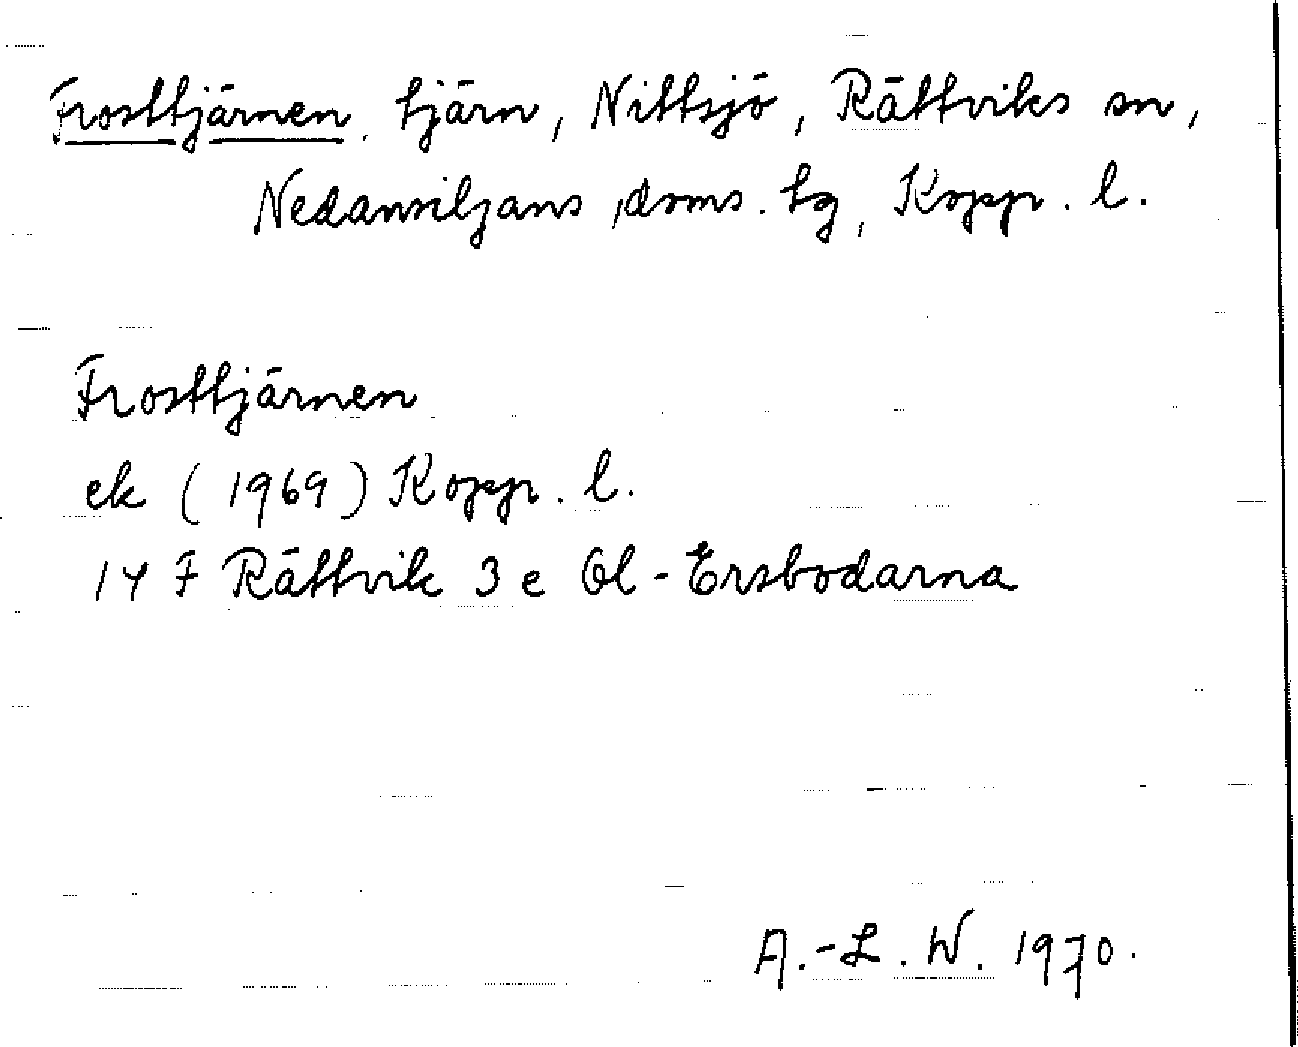 Frosttjärnen, tjärn, Nittsjö, Rättviks sn,
Nedansiljans doms. tg, Kopp. l.
Frosttjärnen
ek (1969) Kopp. l.
14 F Rättvik 3 e Ol-Ersbodarna
A.-L. W. 1970.